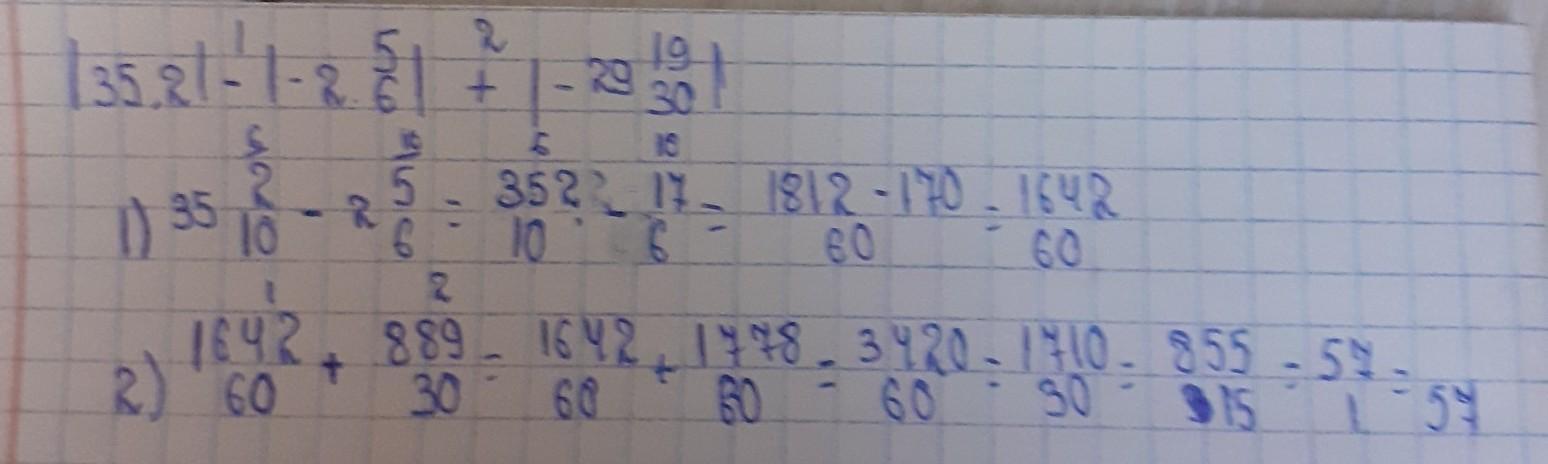 |35,2| - |-2 5/6| + |-29 19/30|
1) 35 2/10 - 2 5/6 = 352/10 - 17/6 = 1812-170/60 = 1642/60
2) 1642/60 + 889/30 = 1642/60 + 1778/60 = 3420/60 = 1710/30 = 855/15 = 57/1 = 57